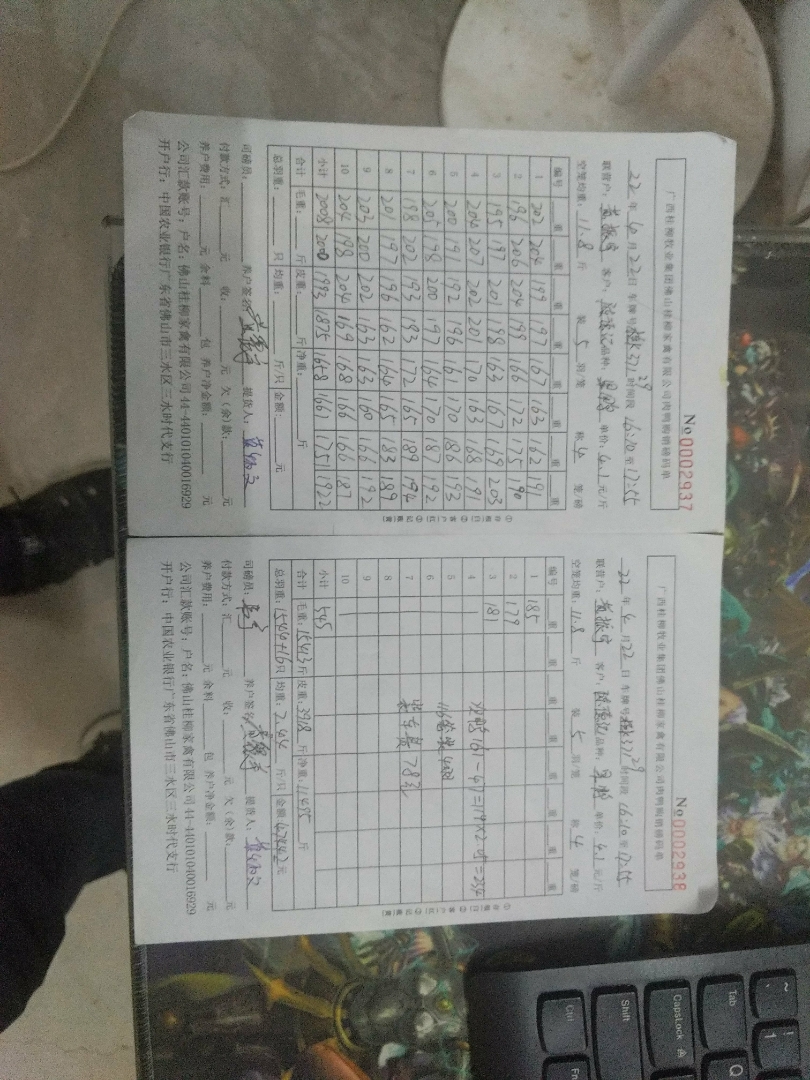 No 0002937
广西桂柳牧业集团佛山桂柳家禽有限公司肉鸭购销磅码单
22年4月22日 车牌号 时间段 16:10至17:55
联营户: 客户: 品种: 单价: 4.1元/斤
空笼均重: 11.8斤 装5羽/笼 称4笼/磅
编号 重 重 重 重 重 重 重 重
1 202 204 199 197 167 163 162 191
2 196 206 204 199 166 172 175 190
3 195 197 201 198 163 167 169 203
4 204 207 202 201 170 163 168 191
5 200 191 192 196 161 170 186 193
6 205 198 200 197 164 170 187 192
7 198 202 193 193 172 165 189 194
8 201 197 196 162 164 165 183 189
9 203 200 202 163 163 160 166 192
10 204 198 204 169 168 166 166 187
小计 2008 2000 1993 1875 1658 1661 1751 1922
合计 毛重: 斤 皮重: 斤 净重: 斤
总羽重: 只 均重: 斤/只 金额: 元
司磅员: 养户签名: 提货人:
付款方式: 汇 元 收: 元 欠(余)款: 元
养户费用: 元 余料 包 养户净金额: 元
公司汇款账号: 户名: 佛山桂柳家禽有限公司 44-440101040016929
开户行: 中国农业银行广东省佛山市三水区三水时代支行
No 0002938
广西桂柳牧业集团佛山桂柳家禽有限公司肉鸭购销磅码单
22年4月22日 车牌号 时间段 16:10至17:55
联营户: 客户: 品种: 单价: 4.1元/斤
空笼均重: 11.8斤 装5羽/笼 称4笼/磅
编号 重 重 重 重 重 重 重 重
1 185
2 179
3 181
4
5
6
7
8
9
10
小计 545
合计 毛重: 15413斤 皮重: 3918斤 净重: 11495斤
总羽重: 只 均重: 斤/只 金额: 元
司磅员: 养户签名: 提货人:
付款方式: 汇 元 收: 元 欠(余)款: 元
养户费用: 元 余料 包 养户净金额: 元
公司汇款账号: 户名: 佛山桂柳家禽有限公司 44-440101040016929
开户行: 中国农业银行广东省佛山市三水区三水时代支行
~
!
1
Tab
Q
CapsLock
Shift
Ctrl
Fn